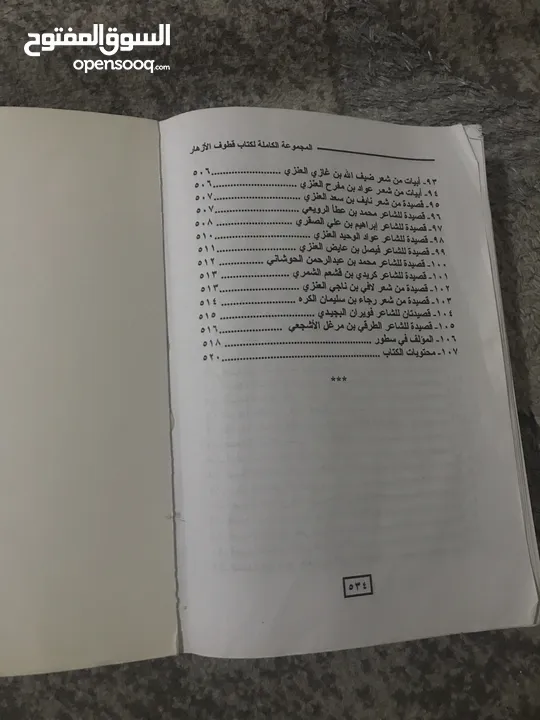 السوق المفتوح
opensooq.com
المجموعة الكاملة لكتاب قطوف الأزهار
٩٣- أبيات من شعر ضيف الله بن غازي العنزي ......................٥٠٦
٩٤- أبيات من شعر عواد بن مفرح العنزي ...........................٥٠٦
٩٥- قصيدة من شعر نايف بن سعد العنزي ...........................٥٠٧
٩٦- قصيدة للشاعر محمد بن عطا الرويعي ...........................٥٠٧
٩٧- قصيدة للشاعر إبراهيم بن علي الصقري .........................٥٠٨
٩٨- قصيدة للشاعر عواد الوحيد العنزي .............................٥١٠
٩٩- قصيدة للشاعر فيصل بن عايض العنزي .........................٥١١
١٠٠- قصيدة للشاعر محمد بن عبدالرحمن الحوشاني ................٥١٢
١٠١- قصيدة للشاعر كريدي بن قشعم الشمري .......................٥١٣
١٠٢- قصيدة من شعر لافي بن ناجي العنزي .........................٥١٣
١٠٣- قصيدة من شعر رجاء بن سليمان الكره ........................٥١٤
١٠٤- قصيدتان للشاعر فويران البجيدي .............................٥١٥
١٠٥- قصيدة للشاعر الطرقي بن مرغل الأشجعي ....................٥١٦
١٠٦- المؤلف في سطور ............................................٥١٨
١٠٧- محتويات الكتاب .............................................٥٢٠
***
٥٣٤